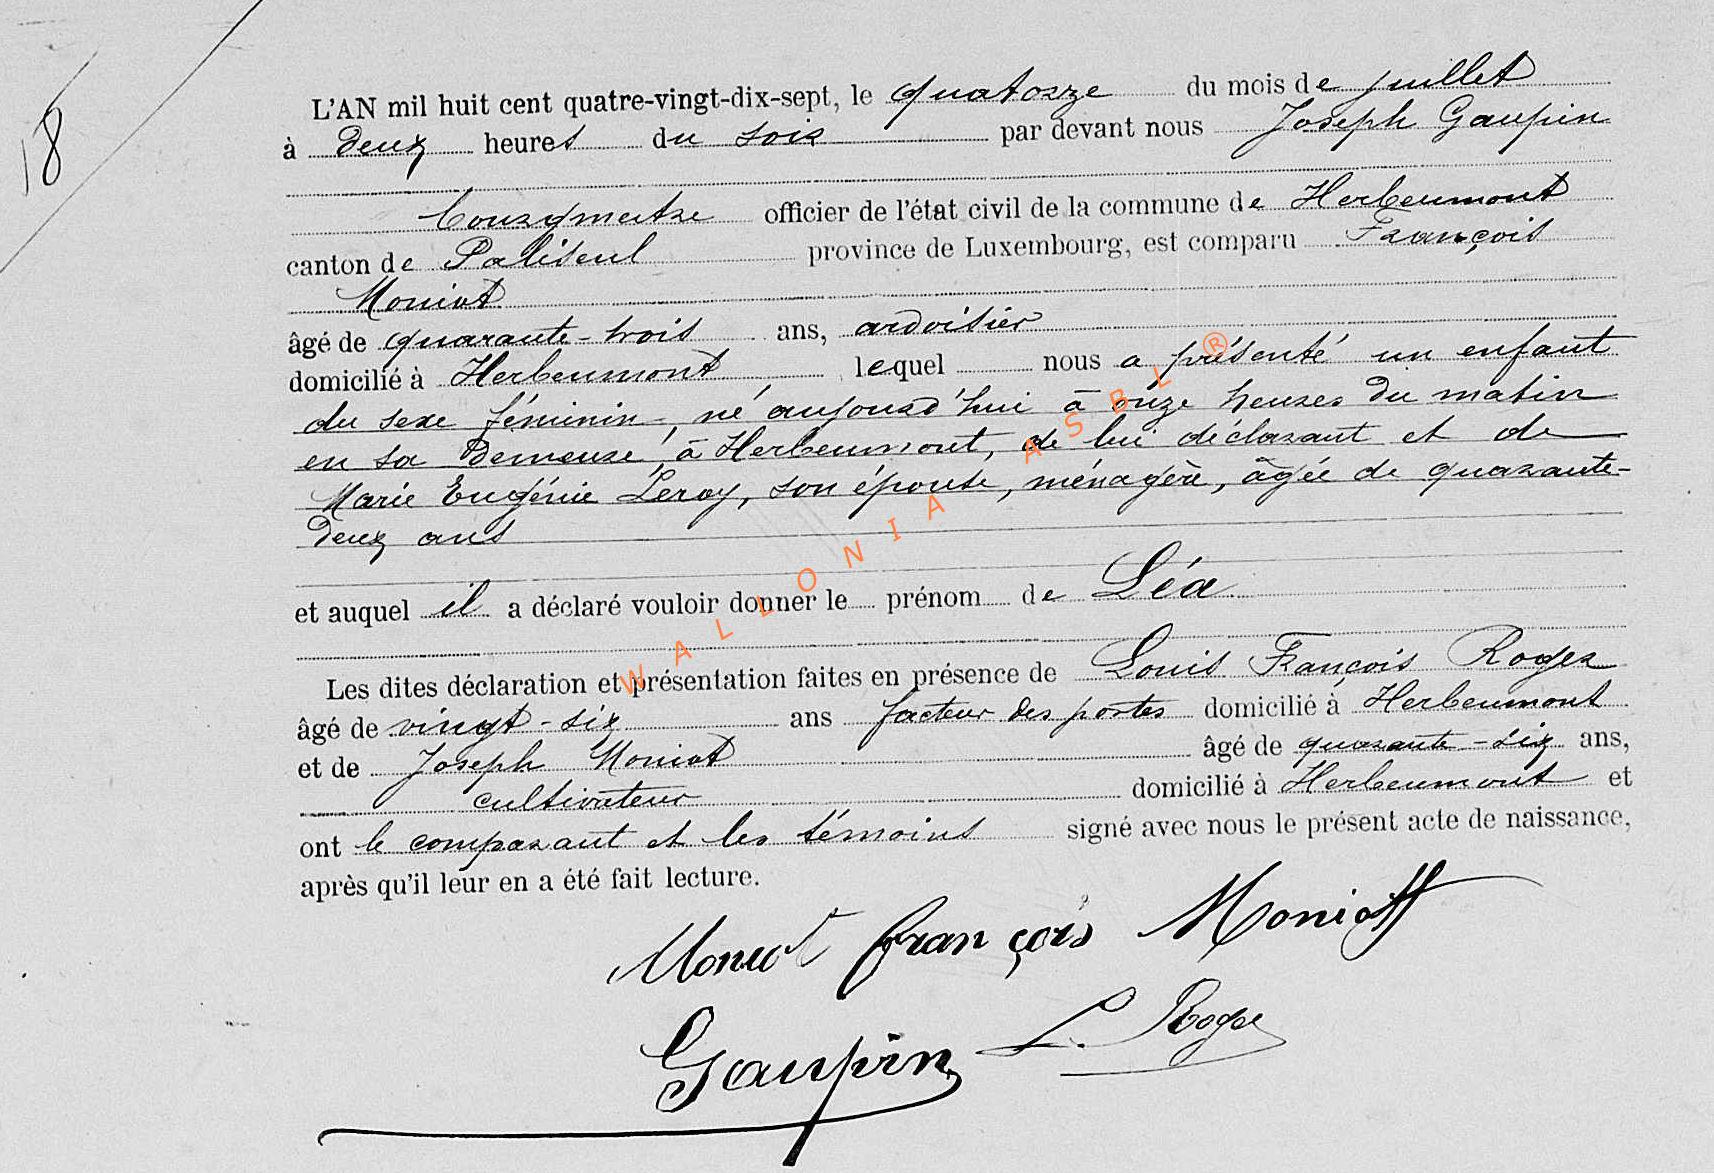 18
L'AN mil huit cent quatre-vingt-dix-sept, le quatorze du mois de juillet
à deux heures du soir par devant nous Joseph Gaupin
Bourgmestre officier de l'état civil de la commune de Herbeumont
canton de Paliseul province de Luxembourg, est comparu François
Moniot
âgé de quarante-trois ans, ardoisier
domicilié à Herbeumont lequel nous a présenté un enfant
du sexe féminin, né aujourd'hui à onze heures du matin
en sa demeure, à Herbeumont, de lui déclarant et de
Marie Eugénie Leroy, son épouse, ménagère, âgée de quarante-
deux ans
et auquel il a déclaré vouloir donner le prénom de Léa
Les dites déclaration et présentation faites en présence de Louis François Roger
âgé de vingt-six ans facteur des postes domicilié à Herbeumont
et de Joseph Moniot âgé de quarante-six ans,
cultivateur domicilié à Herbeumont et
ont le comparant et les témoins signé avec nous le présent acte de naissance,
après qu'il leur en a été fait lecture.
Moniot françois Moniot
Gaupin L. Roger
WALLONIA ASBL ®